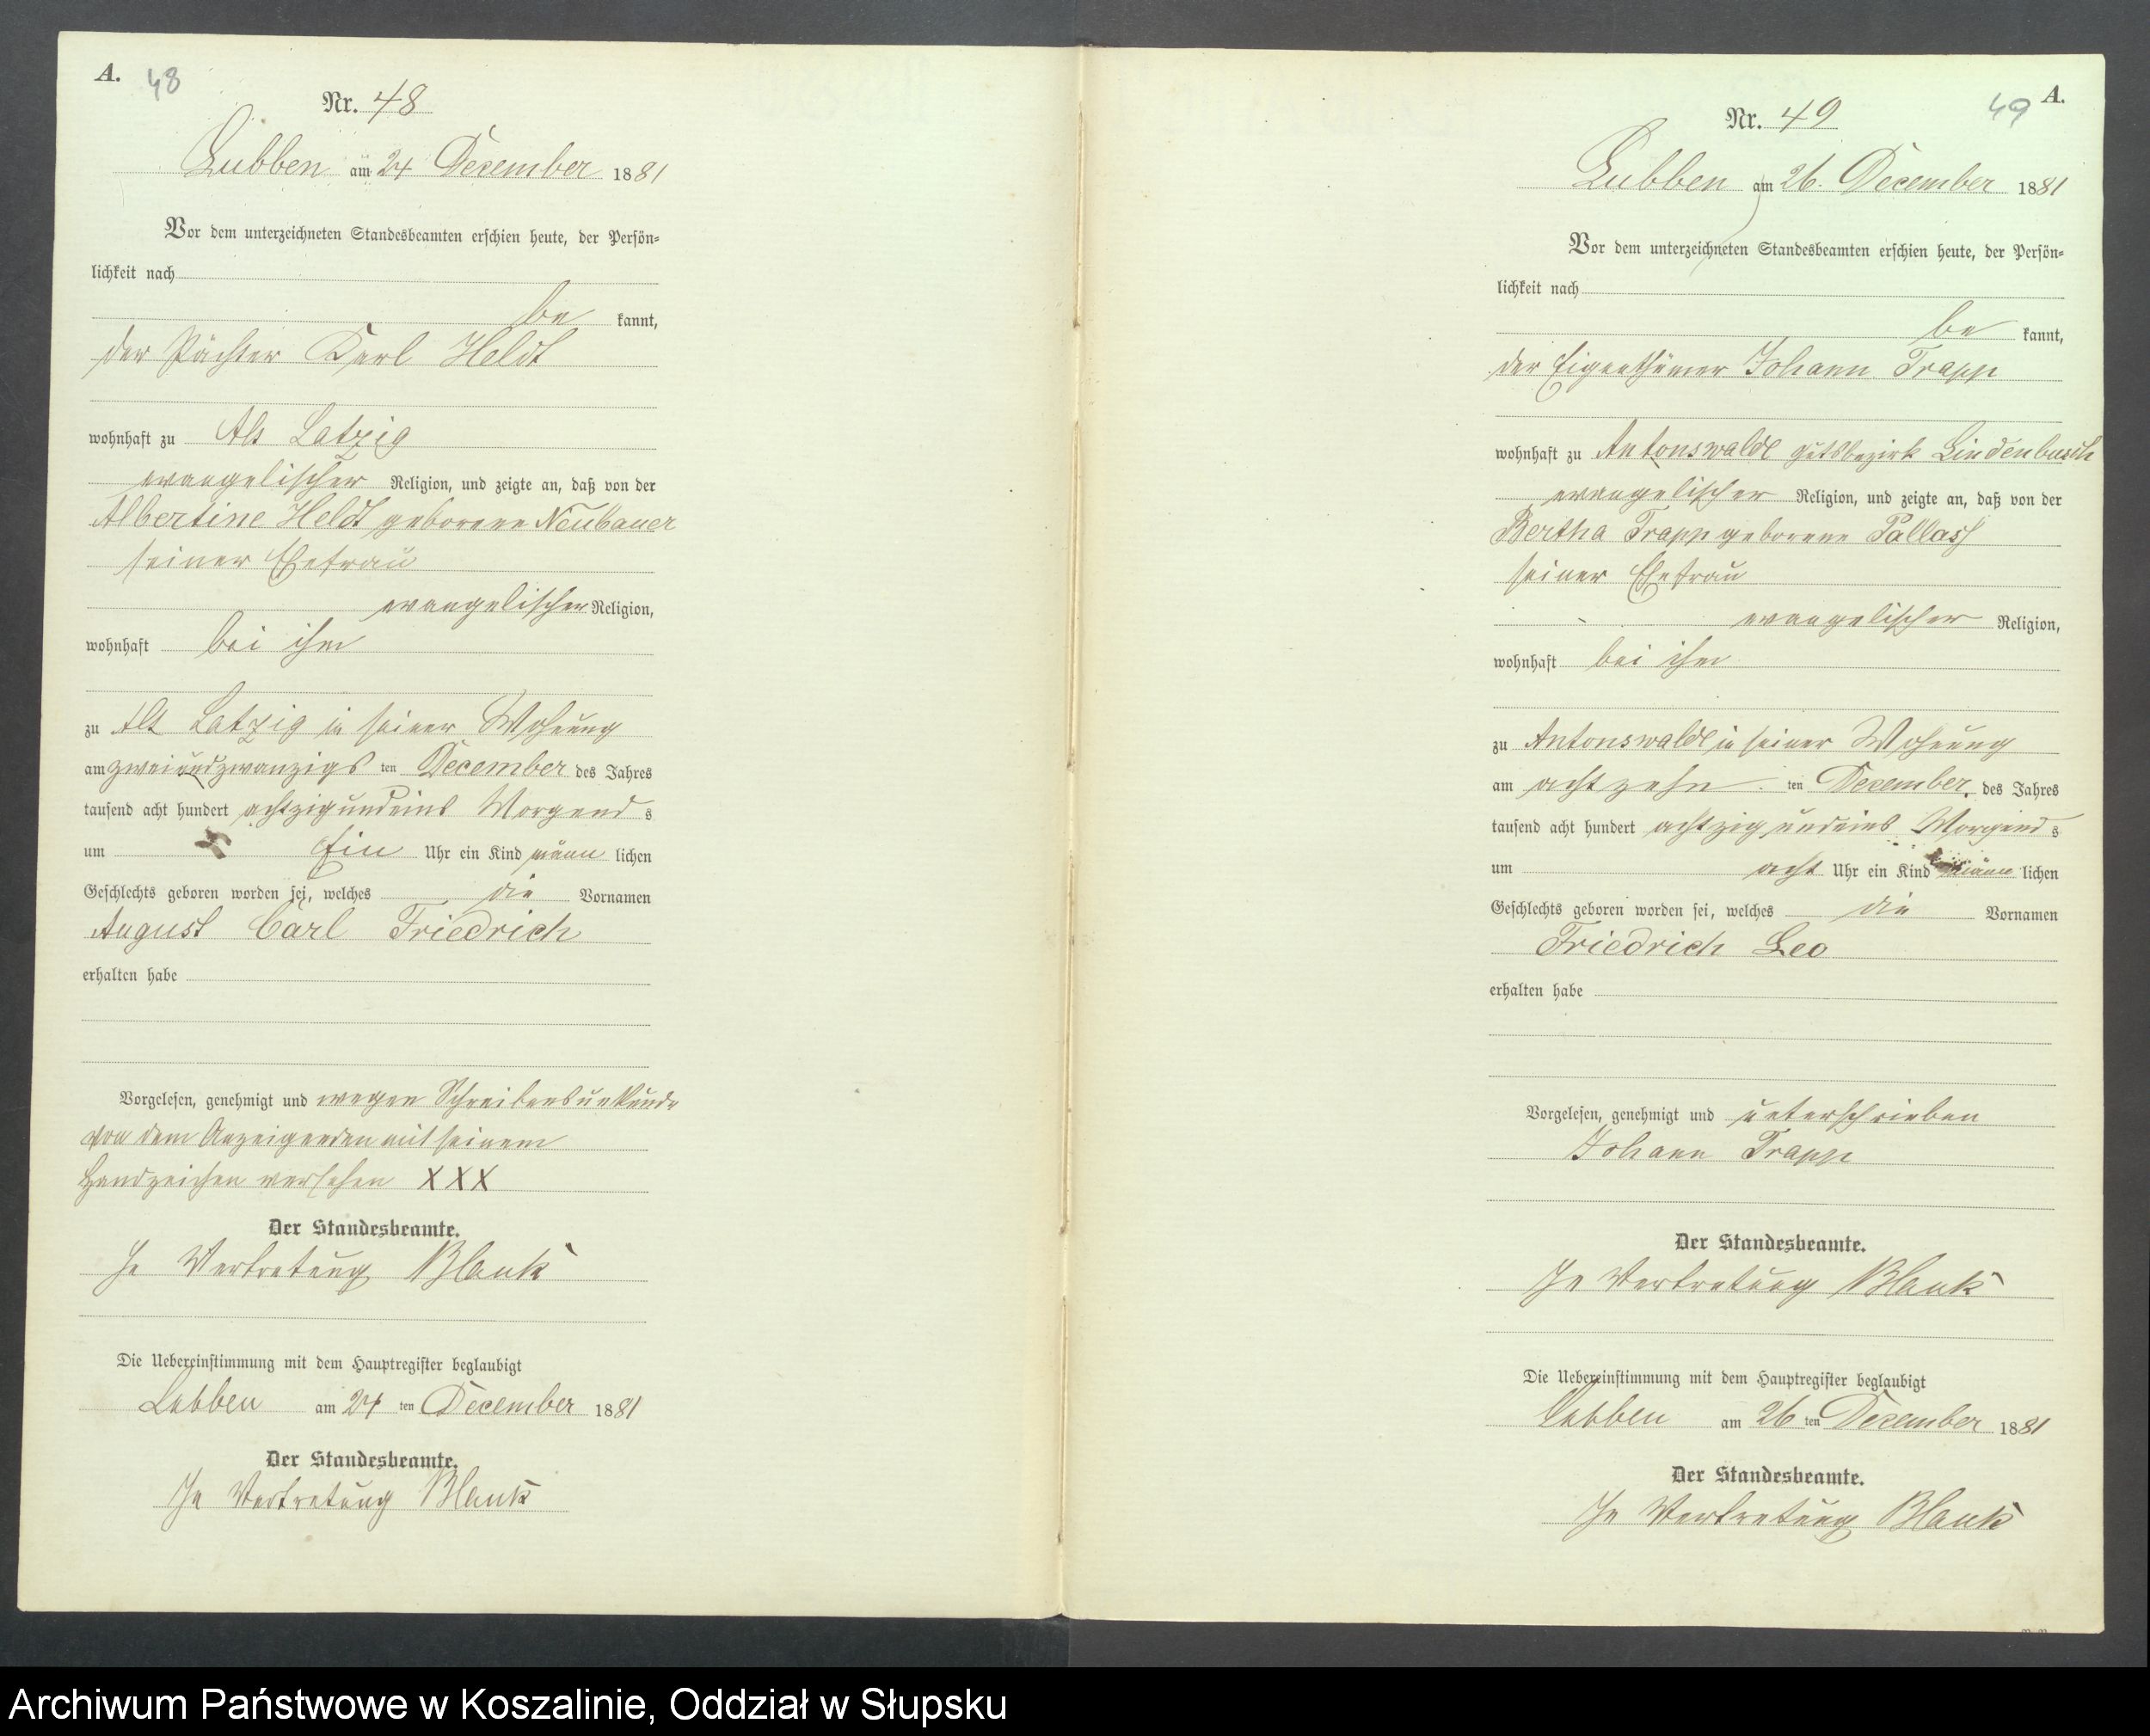 A. 48
Nr. 48
Lubben am 24 December 1881
Vor dem unterzeichneten Standesbeamten erschien heute, der Persön-
lichkeit nach
be kannt,
der Pächter Karl Heldt
wohnhaft zu Alt Latzig
evangelischer Religion, und zeigte an, daß von der
Albertine Heldt geborene Neubauer
seiner Ehefrau
evangelischer Religion,
wohnhaft bei ihm
zu Alt Latzig in seiner Wohnung
am zweiundzwanzigs ten December des Jahres
tausend acht hundert achtzigundeins Morgend s
um Ein Uhr ein Kind männ lichen
Geschlechts geboren worden sei, welches die Vornamen
August Carl Friedrich
erhalten habe
Vorgelesen, genehmigt und wegen Schreibensunkunde
von dem Anzeigenden mit seinem
Handzeichen versehen XXX
Der Standesbeamte.
In Vertretung Blank
Die Uebereinstimmung mit dem Hauptregister beglaubigt
Lubben am 24 ten December 1881
Der Standesbeamte.
In Vertretung Blank
49 A.
Nr. 49
Lubben am 26. December 1881
Vor dem unterzeichneten Standesbeamten erschien heute, der Persön-
lichkeit nach
be kannt,
der Eigenthümer Johann Trapp
wohnhaft zu Antonswalde Gutsbezirk Lindenbusch
evangelischer Religion, und zeigte an, daß von der
Bertha Trapp geborene Pallass
seiner Ehefrau
evangelischer Religion,
wohnhaft bei ihm
zu Antonswalde in seiner Wohnung
am achtzehn ten December des Jahres
tausend acht hundert achtzigundeins Morgend s
um acht Uhr ein Kind männ lichen
Geschlechts geboren worden sei, welches die Vornamen
Friedrich Leo
erhalten habe
Vorgelesen, genehmigt und unterschrieben
Johann Trapp
Der Standesbeamte.
In Vertretung Blank
Die Uebereinstimmung mit dem Hauptregister beglaubigt
Lubben am 26 ten December 1881
Der Standesbeamte.
In Vertretung Blank
Archiwum Państwowe w Koszalinie, Oddział w Słupsku